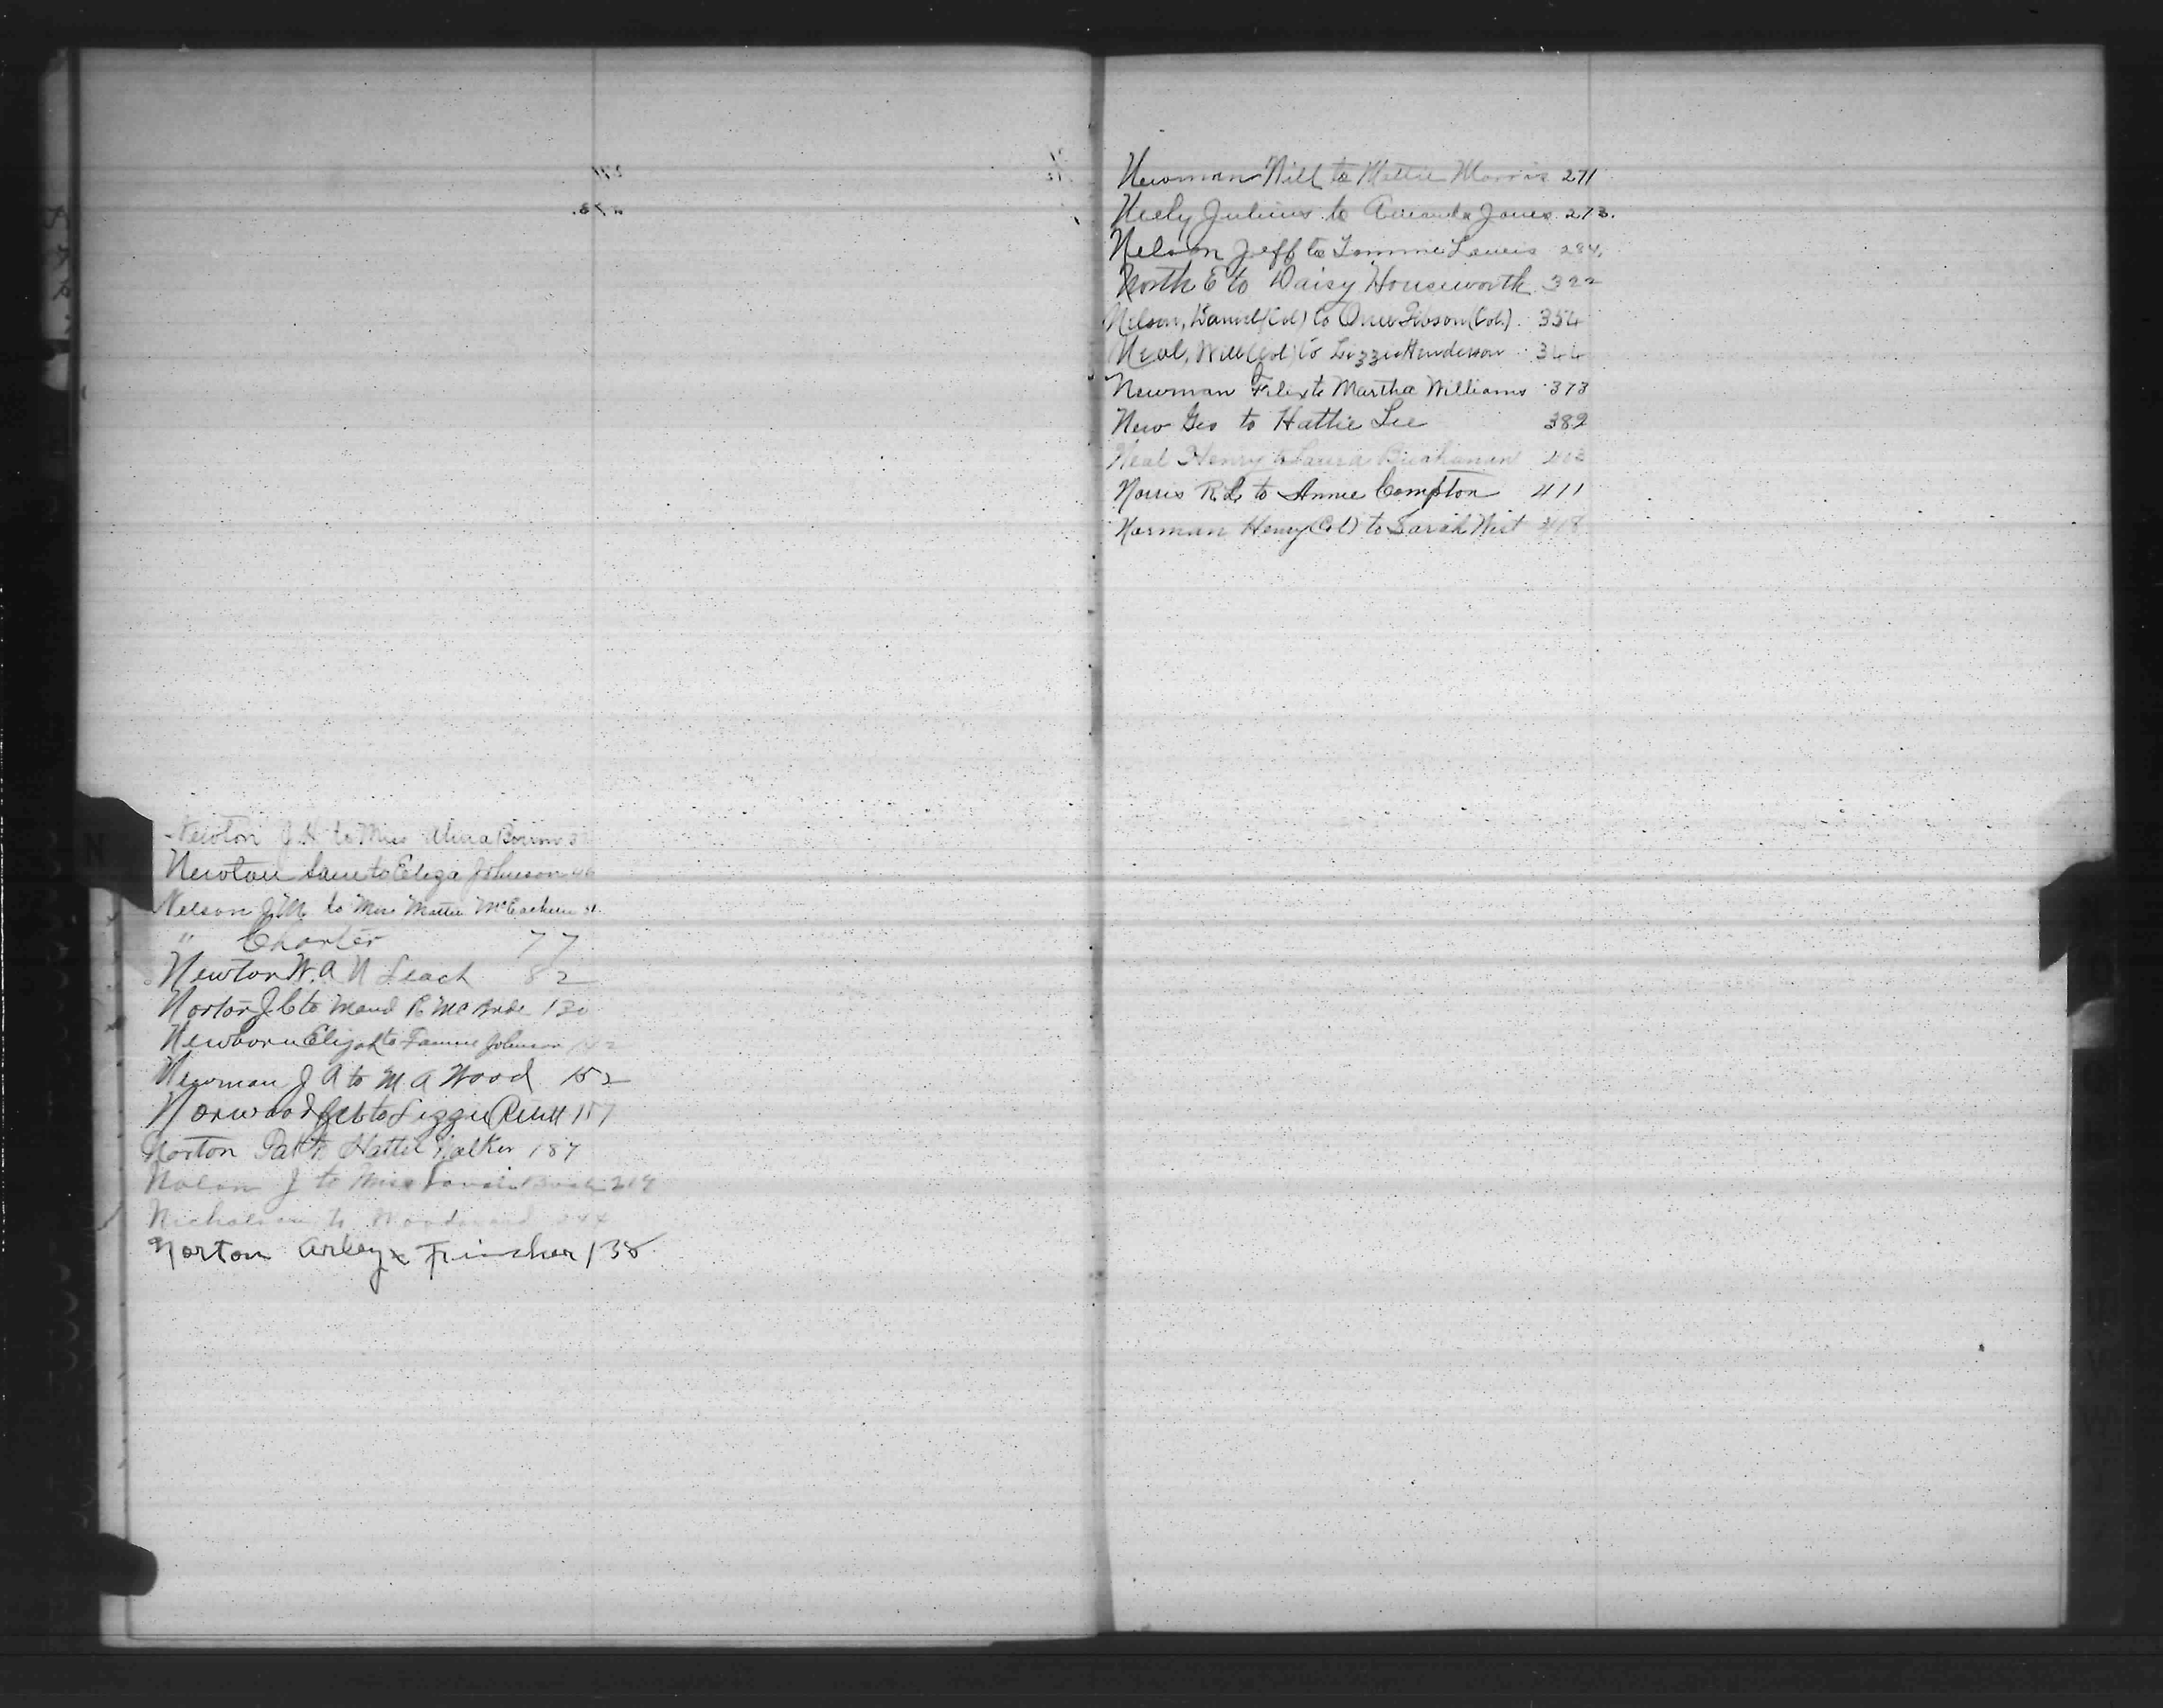 Newton J H to Miss Alma Borum 3
Newton Sam to Eliza Johnson 46
Nelson J M to Miss Mattie McEachern 51
" Charter 77
Newton W. A N Leach 82
Norton J C to Maud R McBride 130
Newborn Elijah to Fannie Johnson 142
Newman J A to M. A Wood 152
Norwood to Lizzie 157
Norton Pat to Hattie Walker 187
Nolan J to Miss 219
Nicholson to Woodward 244
Norton Arley x Fincher 138
Newman Will to Mattie Morris 271
Neely Julius to Amanda Jones 273.
Nelson Jeff to Tommie Lewis 284.
North E to Daisy Houseworth 322
Nelson, Daniel (Col) to Gibson (Col.) 354
Neal, Will (Col) to Lizzie Henderson 344
Newman Felix to Martha Williams 373
New Geo to Hattie Lee 389
Neal Henry to Laura Buchanan 403
Norris R. L. to Annie Compton 411
Norman Henry (Col) to Sarah West 418
N